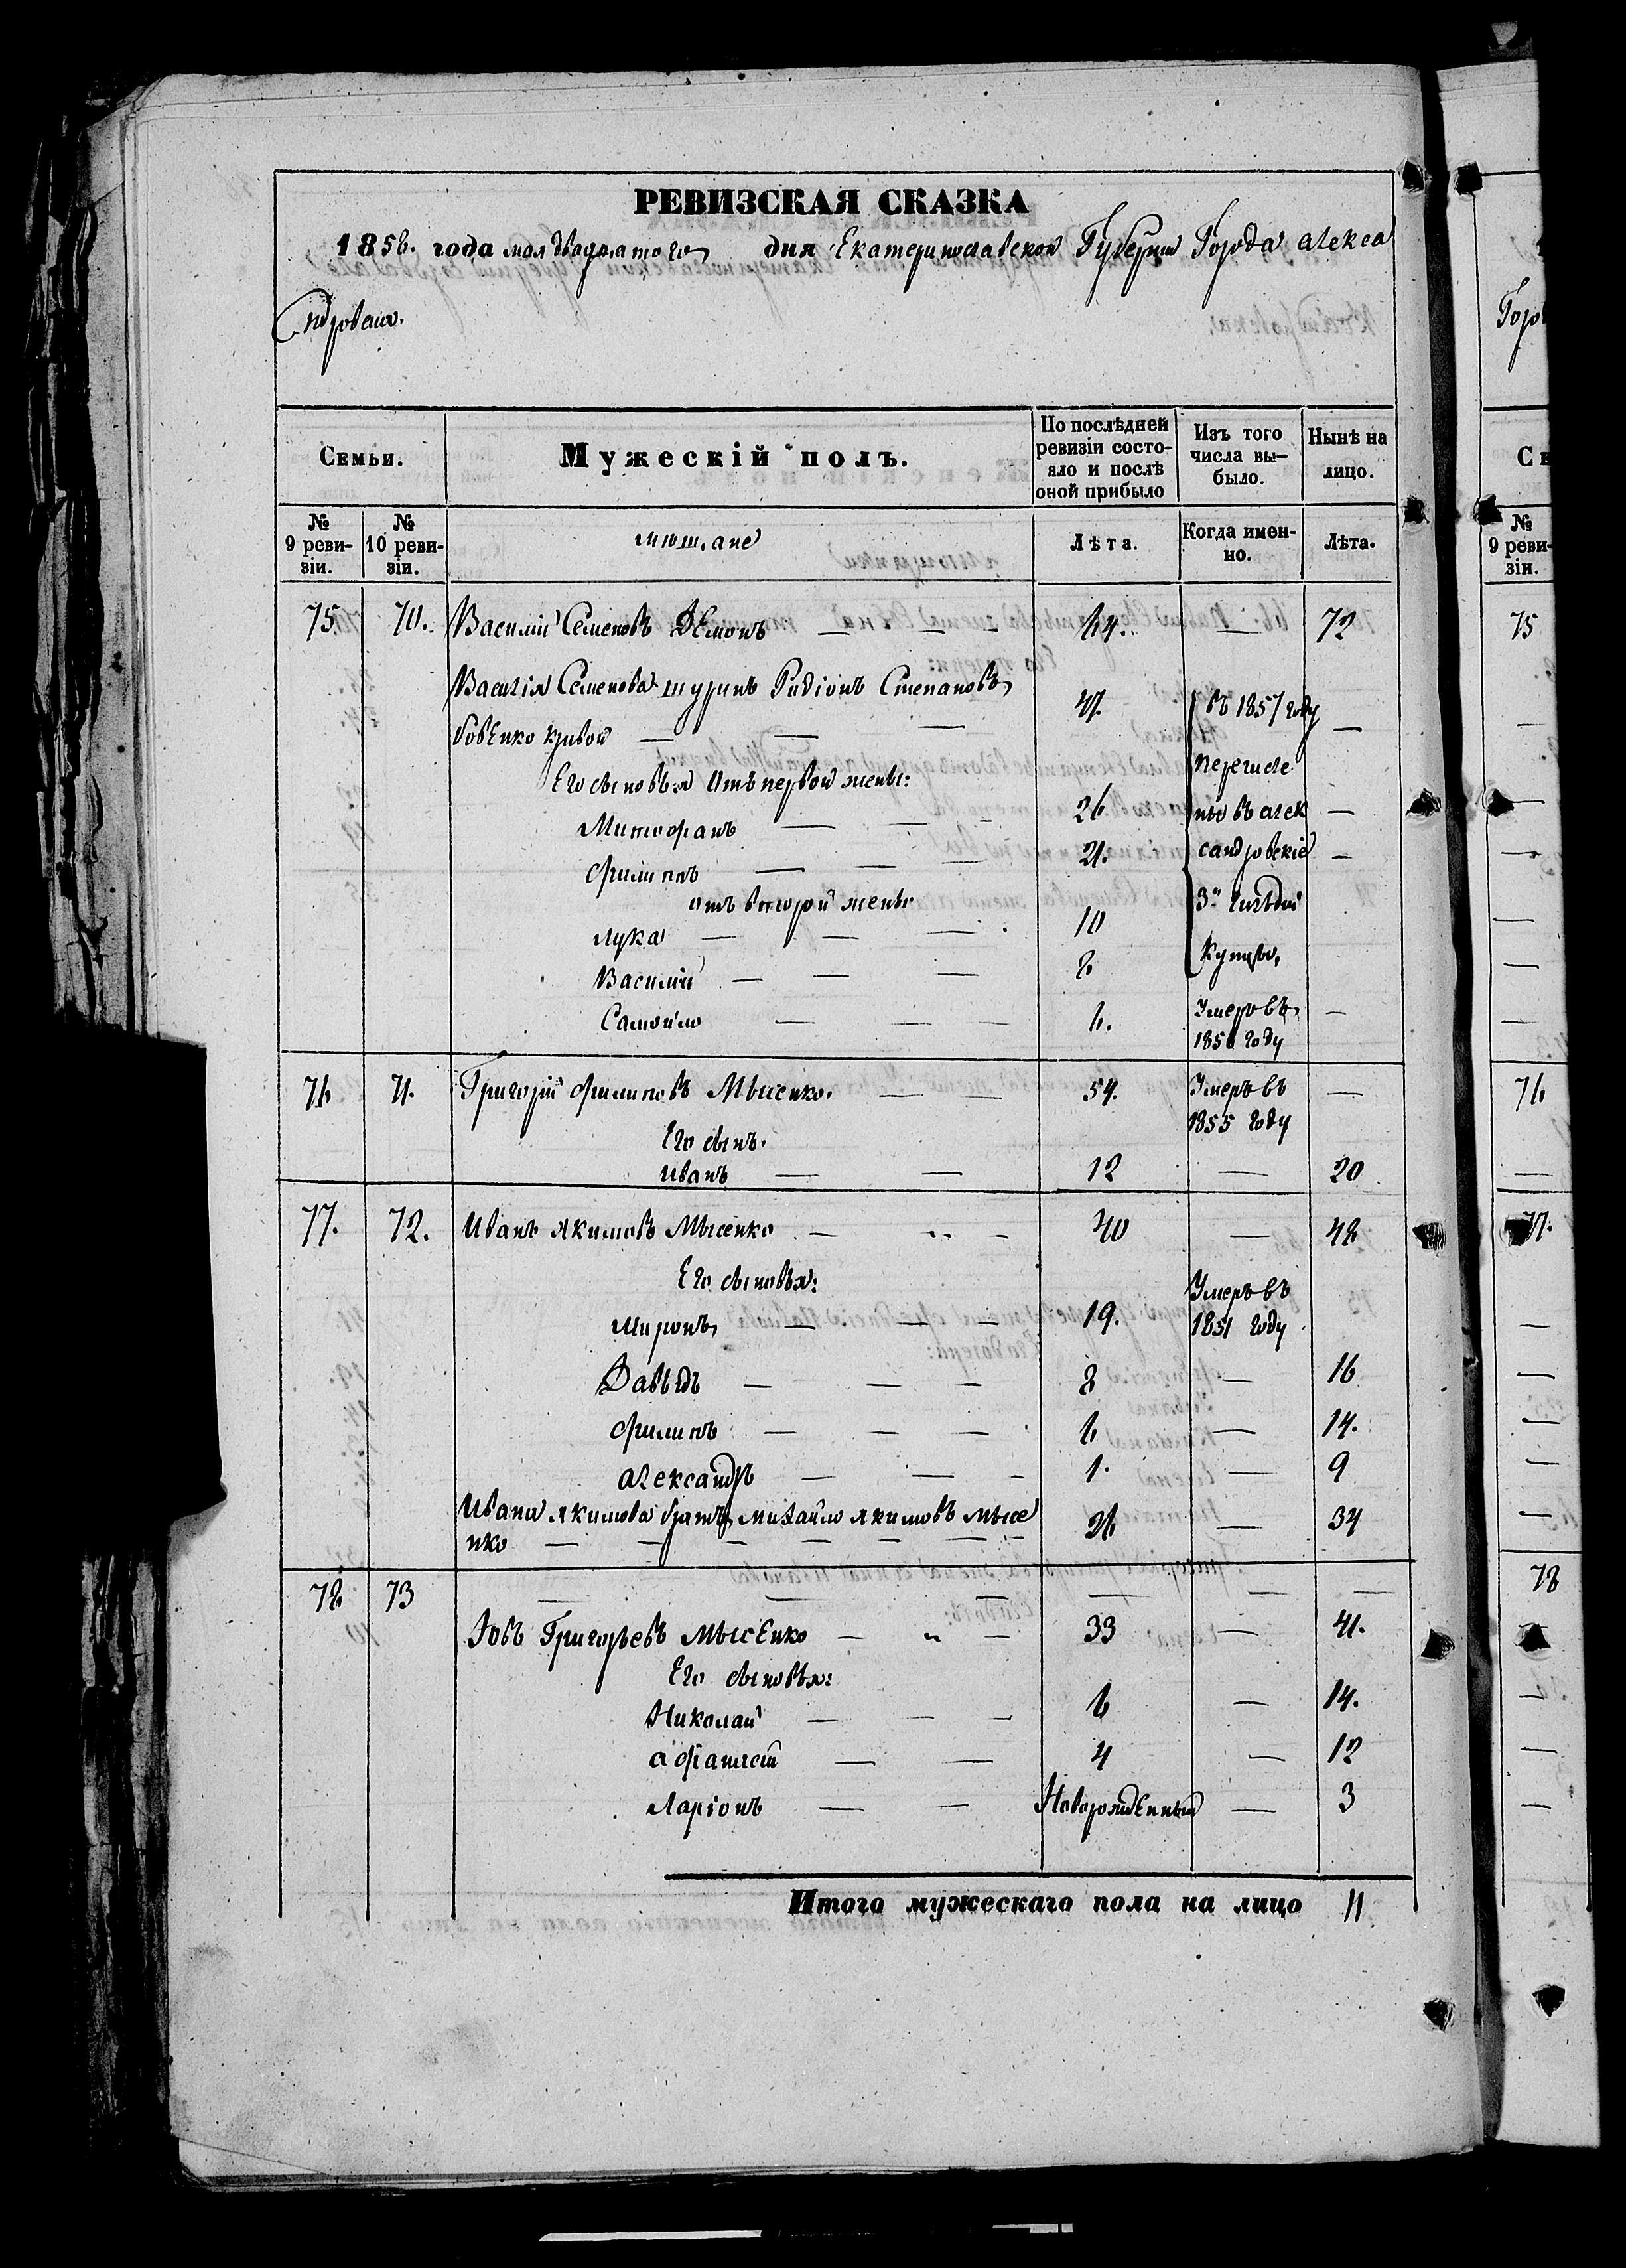 РЕВИЗСКАЯ СКАЗКА
1858. года мая двадцатого дня Екатеринославской Губернии Города Алекса
ндровска.
Семьи.
Мужескій полъ.
По послѣдней ревизіи состо-
яло и послѣ
оной прибыло
Изъ того
числа вы-
было.
Нынѣ на
лицо.
№
9 реви-
зіи.
№
10 реви-
зіи.
мѣщане
Лѣта.
Когда имен-
но.
Лѣта.
75. 70. Василій Семеновъ Демонъ — — — 64. — 72
Василія Семенова шуринъ Родіонъ Степановъ 47. въ 1857 году
Кривой — — — —
Его сыновья отъ первой жены: перечисле
Митрофанъ — — — 26 ны въ алек —
Филипъ — — — 21. сандровскіе —
отъ второй жены 3й гильдіи
Лука — — — 10
Василій — — — 8 купцы,
Самойло — — — 6. Умеръ въ —
1856 году
76 71. Григорій Филиповъ Мысенко. — — 54. Умеръ въ —
1855 году
Его сынъ.
Иванъ — — 12 — 20
77. 72. Иванъ Якимовъ Мысенко — „ — 40 — 48
Его сыновья:
Миронъ — — — 19. Умеръ въ
1851 году
Давыдъ — — — 8 — 16
Филипъ — — — 6 — 14.
Александръ — — — 1. — 9
Ивана Якимова братъ Михайло Якимовъ Мысе 26 — 34
нко — — — — — — —
78 73 — — — — — —
Іовъ Григорьевъ Мысенко — „ — 33 — 41.
Его сыновья:
Николай — — — 6 — 14.
Афанасій — — 4 — 12
Ларіонъ — — Новорожденный — 3
Итого мужескаго пола на лицо 11
Горо
Се
№
9 реви-
зіи.
75
76
77.
78